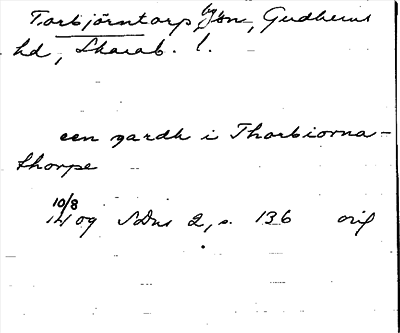 Torbjörntorp, by o sn, Gudhems
hd, Skarab. l.
een gardh i Thorbiorna-
thorpe
10/8
1409 SDns 2, s. 136 orig